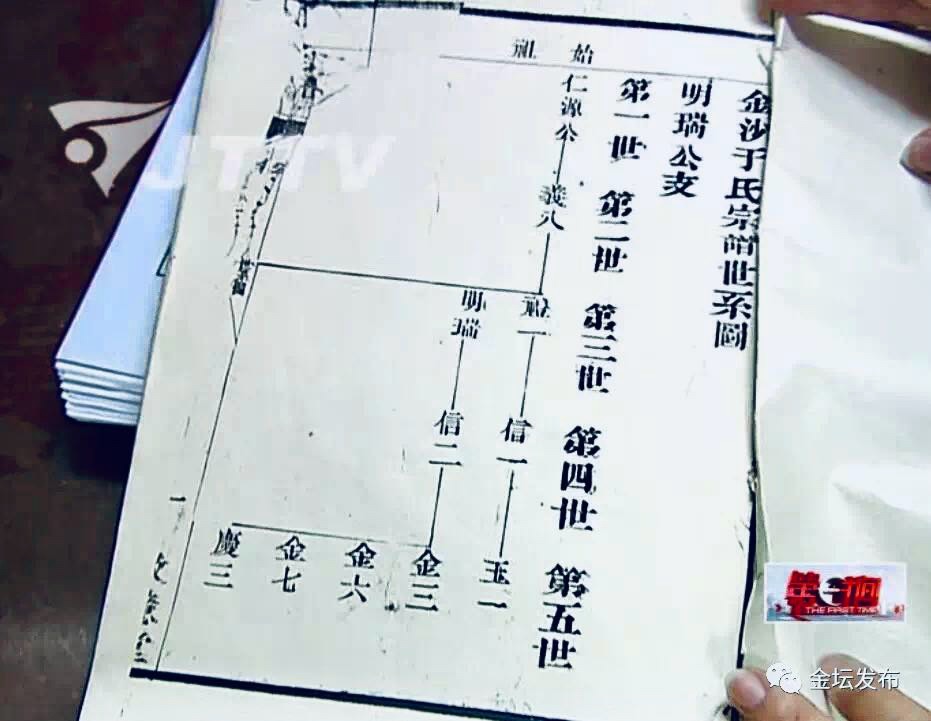 金沙于氏宗譜世系圖
明瑞公支
第一世 第二世 第三世 第四世 第五世
始祖
仁源公
義八
禮一
明瑞
信一
信二
玉一
金三
金六
金七
慶三
一
JTTV
THE FIRST TIME
金坛发布